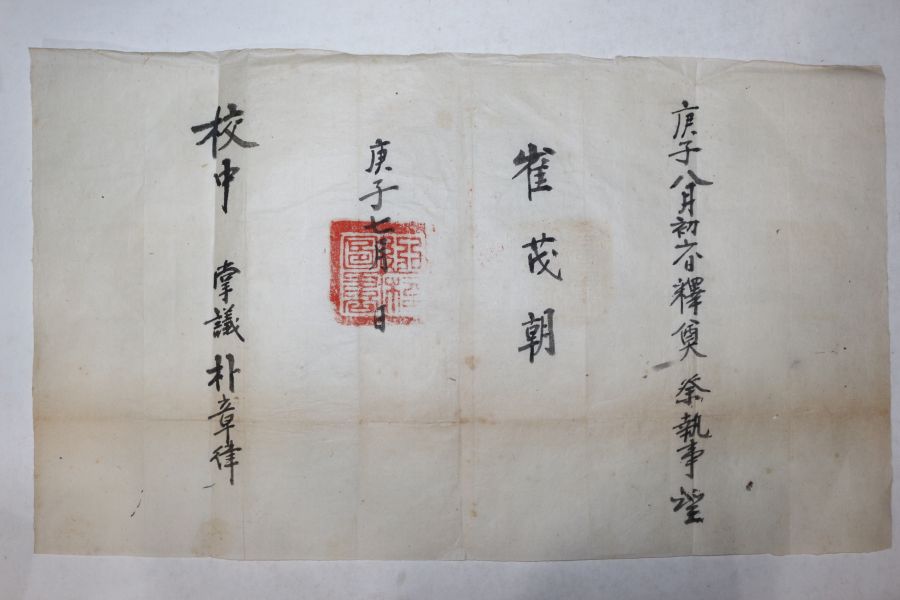 庚子八月初六日釋奠 祭執事 望
崔茂朝
庚子七月 日
圖書
校中 掌議 朴章律